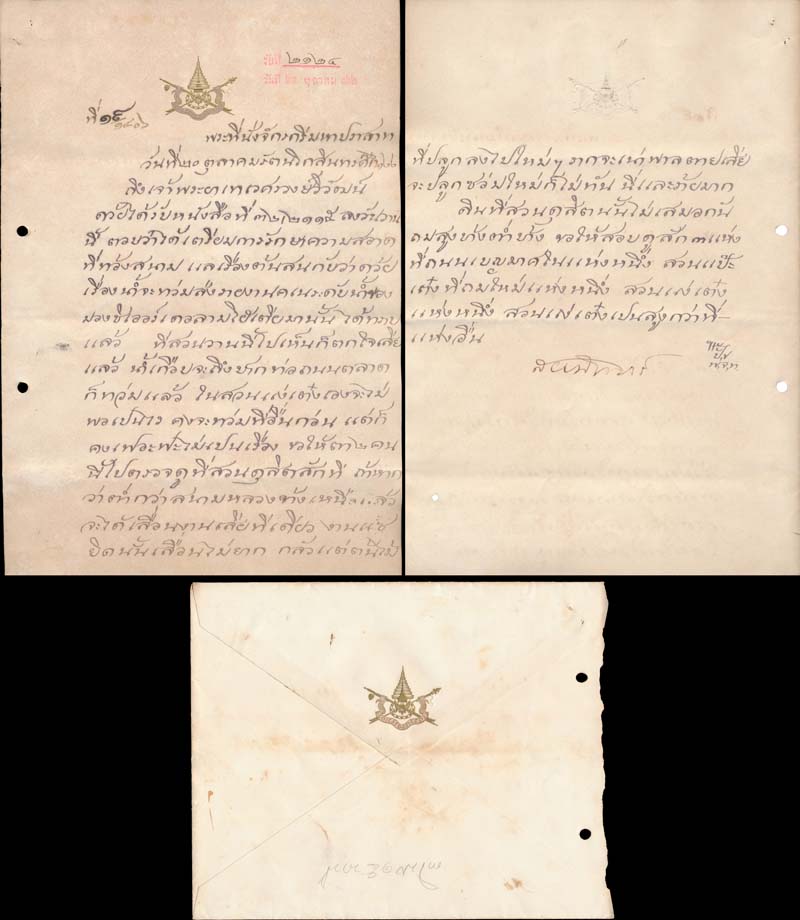 รับที่ ๒๑๒๔
วันที่ ๒๑ ตุลาคม ๑๒๒
ที่ ๑๕
พระที่นั่งจักรกรีมหาปราสาท
วันที่ ๒๐ ตุลาคม รัตนโกสินทรศก
ถึง เจ้าพระยาเทเวศรวงษ์วิวัฒน์
ด้วยได้รับหนังสือที่ ลงวันวาน
นี้ ตอบว่าได้เตรียมการรักษาความสอาด
ที่ท้องสนาม แลเรื่องต้นสนกับว่าด้วย
เรื่องน้ำจะท่วมส่งรายงานคเนระดับน้ำของ
นั้น ได้ทราบ
แล้ว ที่สวนวานนี้ไปเห็นก็ตกใจเสีย
แล้ว น้ำเกือบจะถึงปากท่อถนนตลาด
ก็ท่วมแล้ว ในสวนแง่เต๋งเองจะไม่
พอเปนไร คงจะท่วมที่อื่นก่อน แต่ก็
คงเฟอะฟะไม่เปนเรื่อง ขอให้ คน
นี้ไปตรวจดูที่สวนดุสิตสักที ถ้าหาก
ว่าต่ำกว่าสนามหลวงข้างเหนือแล้ว
จะได้เลื่อนงานเสียทีเดียว งาน
นั้นเลื่อนไม่ยาก กลัวแต่ต้นไม้
ที่ปลูกลงไปใหม่ๆ รากจะเน่าพาลตายเสีย
จะปลูกซ่อมใหม่ก็ไม่ทัน นี่แลร้ายมาก
ดินที่สวนดุสิตนั้นไม่เสมอกัน
ถมสูงบ้างต่ำบ้าง ขอให้สอบดูสัก ๓ แห่ง
ที่ถนนเบญมาศในแห่งหนึ่ง สวนแป๊ะ
เต๋งที่ถมใหม่แห่งหนึ่ง สวนแง่เต๋ง
แห่งหนึ่ง สวนแง่เต๋งเปนสูงกว่าที่
แห่งอื่น
สยามินทร์